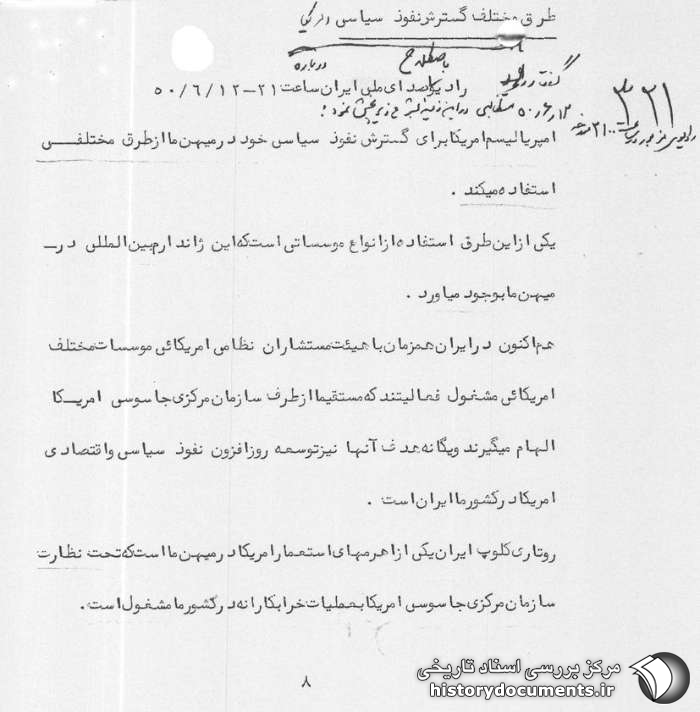 طرق مختلف گسترش نفوذ سیاسی
باصطلاح
درباره
گفتار
رادیو صدای ملی ایران ساعت ۲۱–۵۰/۶/۱۲
۳۳۱
امپریالیسم امریکا برای گسترش نفوذ سیاسی خود در میهن ما از طرق مختلفی
استفاده میکند .
یکی از این طرق استفاده از انواع موسساتی است که این ژاندارم بین المللی در
میهن ما بوجود میاورد .
هم اکنون در ایران همزمان با هیئت مستشاران نظامی امریکائی موسسات مختلف
امریکائی مشغول فعالیتند که مستقیما از طرف سازمان مرکزی جاسوسی امریکا
الهام میگیرند ویگانه هدف آنها نیز توسعه روز افزون نفوذ سیاسی واقتصادی
امریکا در کشور ما ایران است .
روتاری کلوپ ایران یکی از اهرمهای استعمار امریکا در میهن ما است که تحت نظارت
سازمان مرکزی جاسوسی امریکا بعملیات خرابکارانه در کشور ما مشغول است .
۸
مرکز بررسی اسناد تاریخی
historydocuments.ir